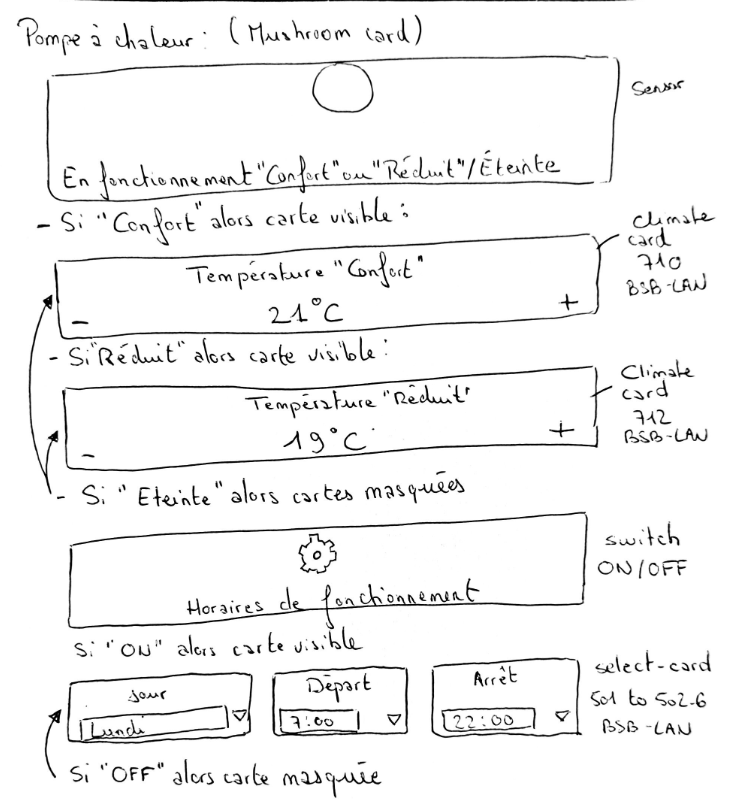 Pompe à chaleur : (Mushroom card)
Sensor
En fonctionnement "Confort" ou "Réduit"/Éteinte
- Si "Confort" alors carte visible :
Climate
card
710
BSB-LAN
Température "Confort"
- 21°C +
- Si "Réduit" alors carte visible :
Climate
card
712
BSB-LAN
Température "Réduit"
- 19°C +
- Si "Eteinte" alors cartes masquées
switch
ON/OFF
Horaires de fonctionnement
Si "ON" alors carte visible
select-card
501 to 502-6
BSB-LAN
Jour
Lundi
Départ
7:00
Arrêt
22:00
Si "OFF" alors carte masquée